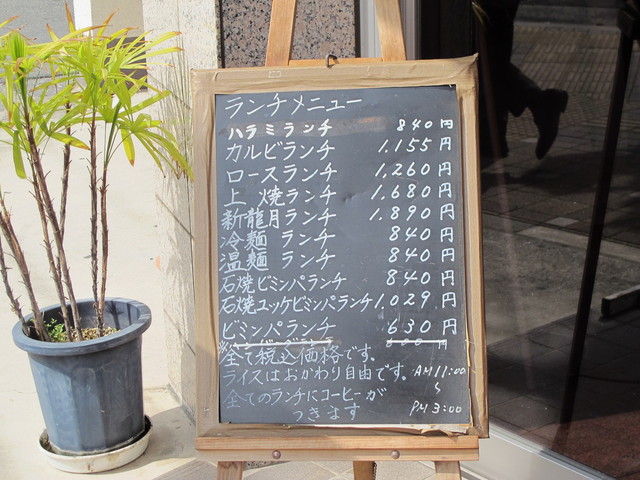 ランチメニュー
ハラミランチ 840円
カルビランチ 1,155円
ロースランチ 1,260円
上 焼ランチ 1,680円
新龍月ランチ 1,890円
冷麺 ランチ 840円
温麺 ランチ 840円
石焼ビミンパランチ 840円
石焼ユッケビミンパランチ 1,029円
ビミンパランチ 630円
全て税込価格です。
ライスはおかわり自由です。 AM11:00
全てのランチにコーヒーが 〜
つきます PM3:00